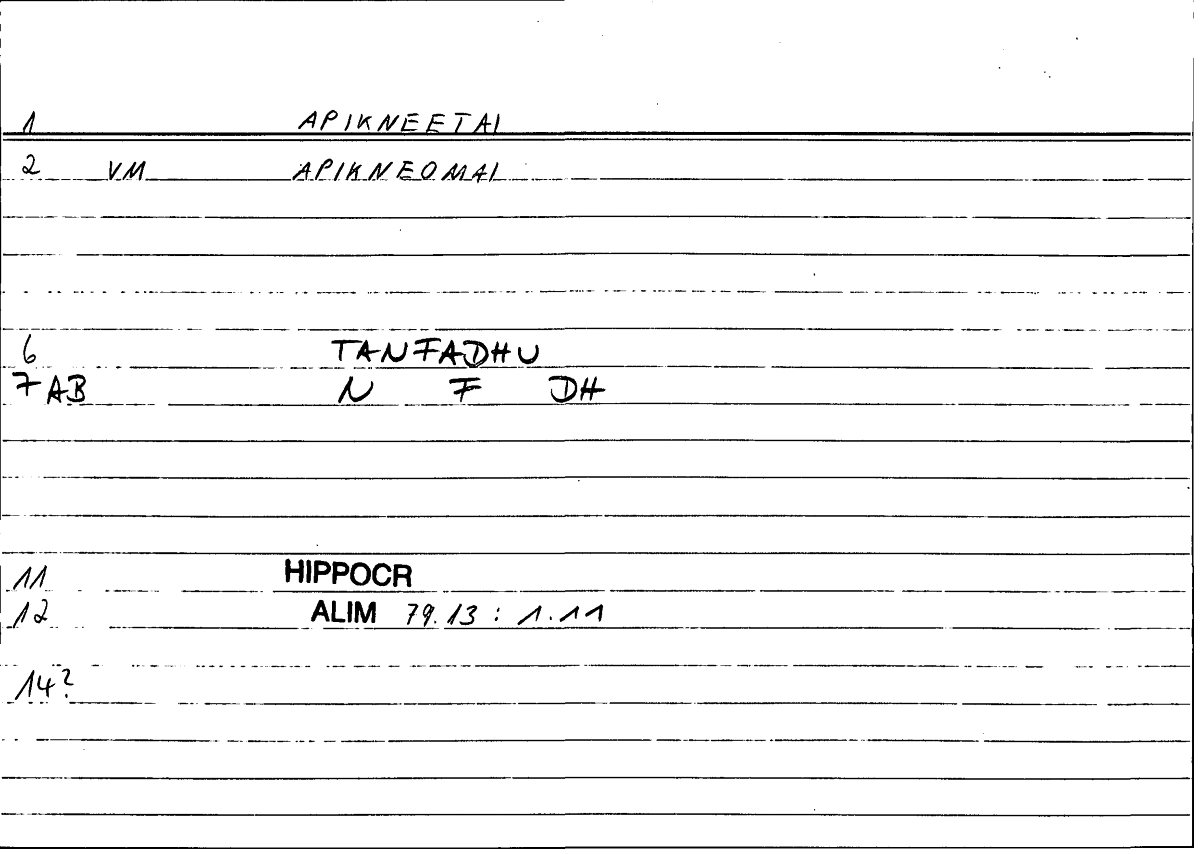 1 APIKNEETAI
2 VM APIKNEOMAI
6 TANFADHU
7 AB N F DH
11 HIPPOCR
12 ALIM 79.13 : 1.11
14?